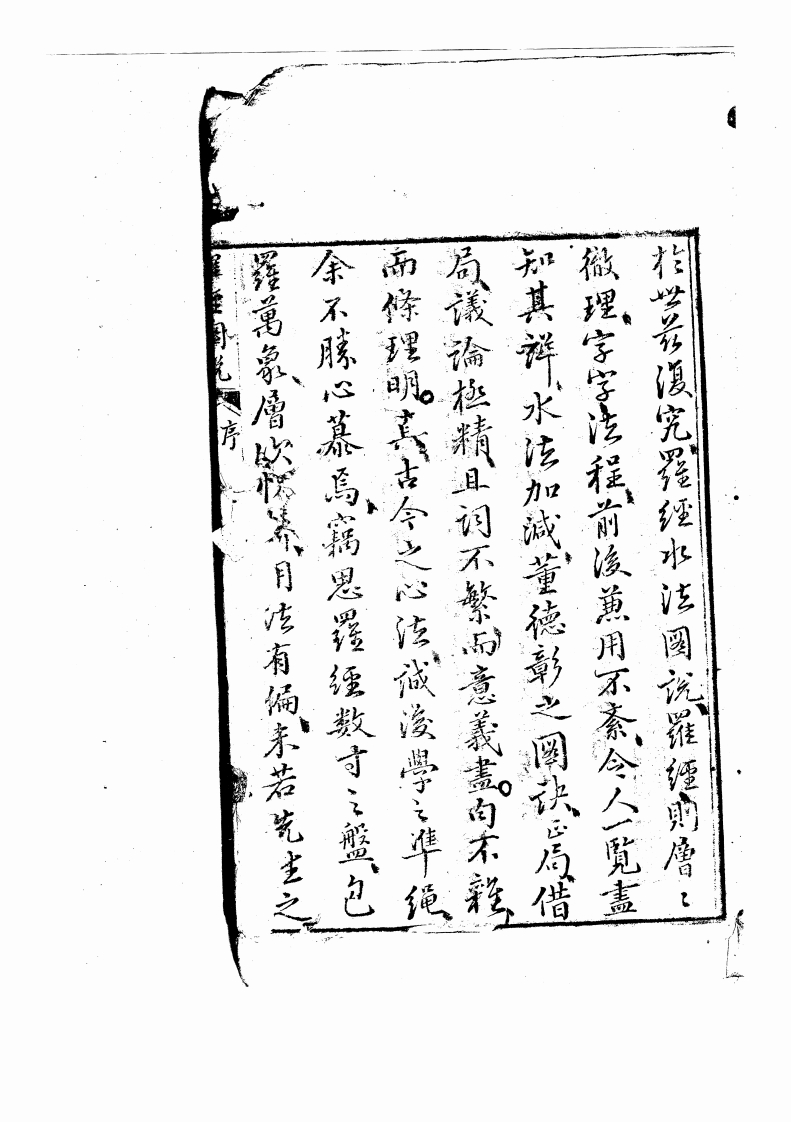 於世茲復究羅經水法圖説羅經則層〻
徹理字字法程前後兼用不紊令人一覽盡
知其詳水法加減董德彰之圖訣正局借
局議論極精且詞不繁而意義盡向不雜
而條理明真古今之心法誠後學之準繩
余不勝心慕焉竊思羅經数寸之盤包
羅萬象層次
月法有偏未若先生之
羅經圖説
序